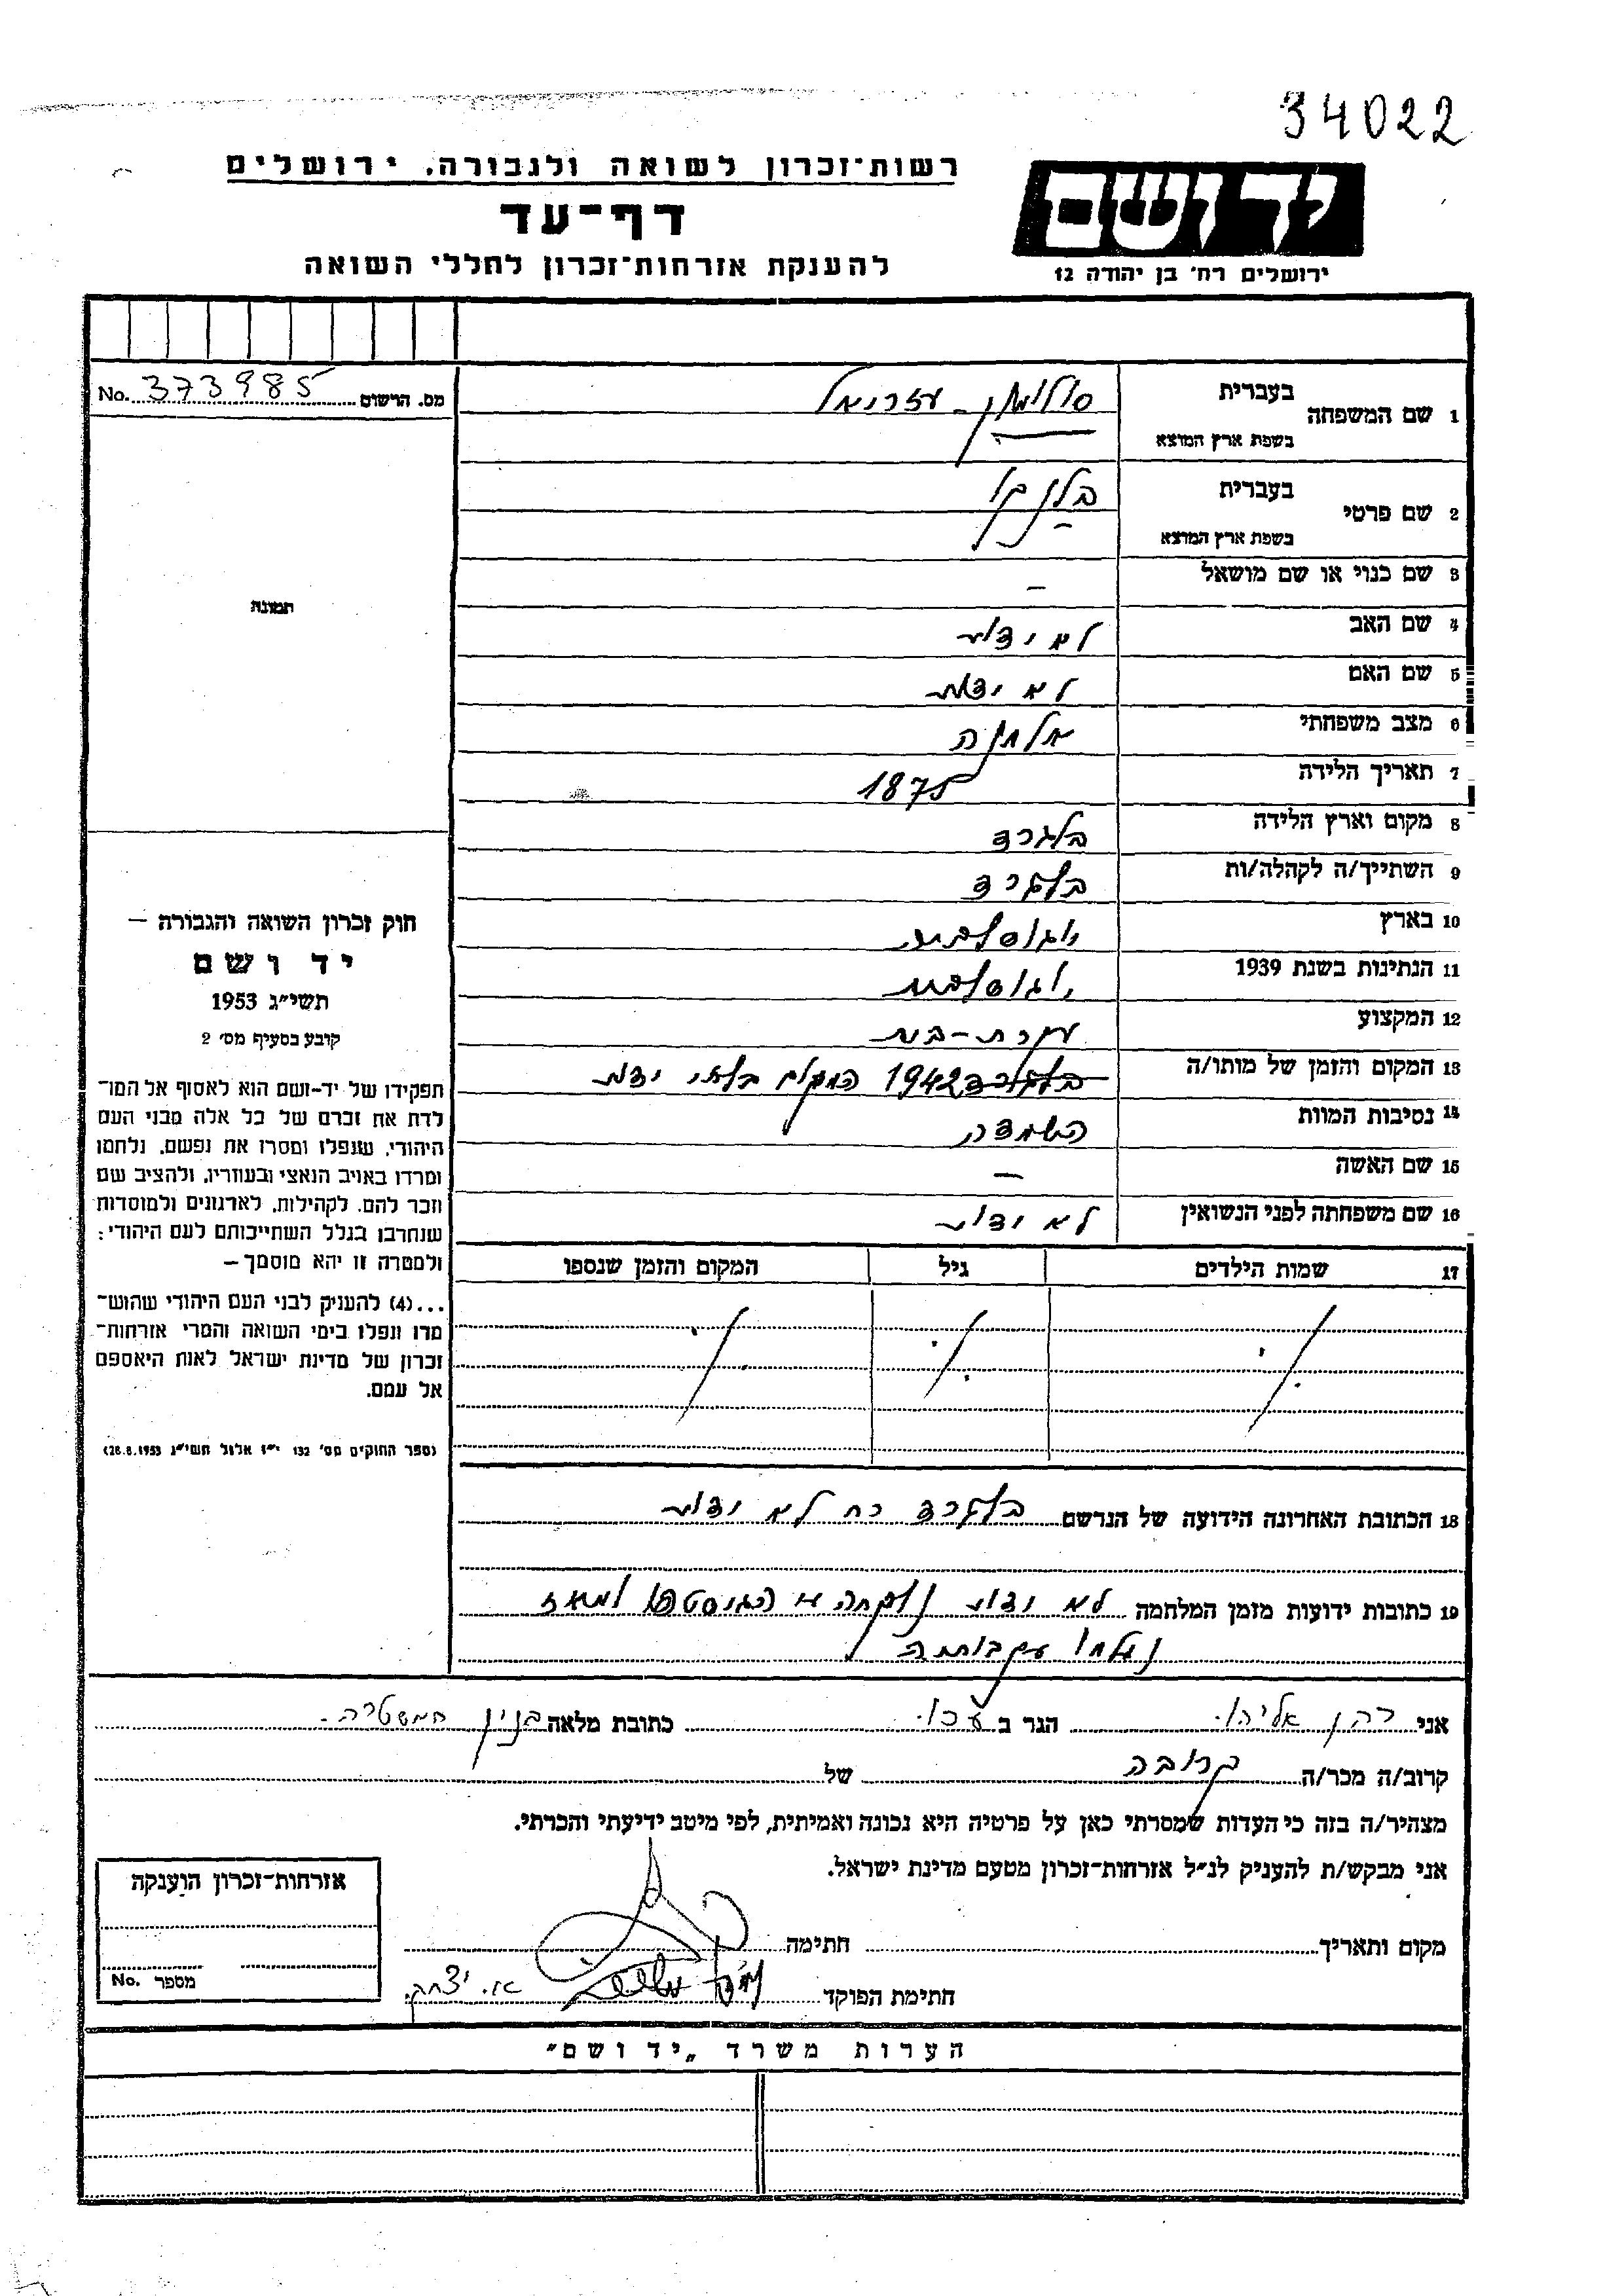 34022
ידושם
ירושלים רח׳ בן יהודה 12
רשות־זכרון לשואה ולגבורה, ירושלים
דף־עד
להענקת אזרחות־זכרון לחללי השואה
מס. הרשום 373985 No.
תמונה
חוק זכרון השואה והגבורה –
יד ושם
תשי״ג 1953
קובע בסעיף מס׳ 2
תפקידו של יד־ושם הוא לאסוף אל המו־
לדת את זכרם של כל אלה מבני העם
היהודי, שנפלו ומסרו את נפשם, נלחמו
ומרדו באויב הנאצי ובעוזריו, ולהציב שם
וזכר להם, לקהילות, לארגונים ולמוסדות
שנחרבו בגלל השתייכותם לעם היהודי;
ולמטרה זו יהא מוסמך –
...(4) להעניק לבני העם היהודי שהוש־
מדו ונפלו בימי השואה והמרי אזרחות־
זכרון של מדינת ישראל לאות היאספם
אל עמם.
(ספר החוקים מס׳ 132 י״ז אלול תשי״ג 28.8.1953)
1 שם המשפחה בעברית סולומון - עזריאל
בשפת ארץ המוצא
2 שם פרטי בעברית
בשפת ארץ המוצא
3 שם כנוי או שם מושאל –
4 שם האב לא ידוע
5 שם האם לא ידוע
6 מצב משפחתי אלמנה
7 תאריך הלידה 1875
8 מקום וארץ הלידה בלגרד
9 השתייך/ה לקהלה/ות בלגרד
10 בארץ יוגוסלביה
11 הנתינות בשנת 1939 יוגוסלבית
12 המקצוע עקרת-בית
13 המקום והזמן של מותו/ה בלגרד 1942 המקום בלתי ידוע
14 נסיבות המוות השמדה
15 שם האשה –
16 שם משפחתה לפני הנשואין לא ידוע
17 שמות הילדים גיל המקום והזמן שנספו
18 הכתובת האחרונה הידועה של הנרשם בלגרד רח לא ידוע
19 כתובות ידועות מזמן המלחמה לא ידוע נלקחה ע״י הגיסטפו ומאז
נעלמו עקבותיה
אני כהן אליהו. הגר ב עכו. כתובת מלאה בנין המשטרה.
קרוב/ה מכר/ה קרובה של
מצהיר/ה בזה כי העדות שמסרתי כאן על פרטיה היא נכונה ואמיתית, לפי מיטב ידיעתי והכרתי.
אני מבקש/ת להעניק לנ״ל אזרחות־זכרון מטעם מדינת ישראל.
מקום ותאריך חתימה
חתימת הפוקד א. יצחק.
אזרחות־זכרון הוענקה
מספר No.
הערות משרד „יד ושם״